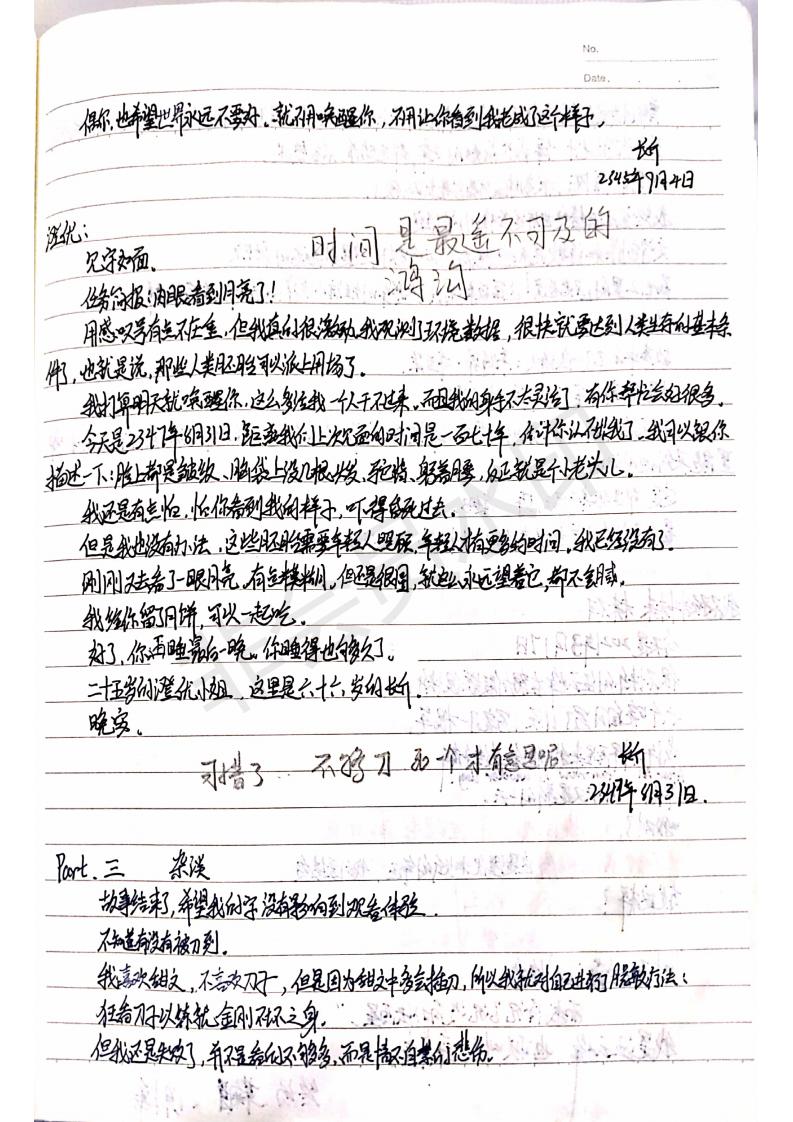 No.
Date.
偶尔,也希望世界永远不要好。就不用唤醒你,不用让你看到我老成了这个样子。
长昕
2345年9月4日
澄优:
时间是最遥不可及的
见字如面。
鸿沟
任务简报:肉眼看到月亮了!
用感叹号有点不庄重,但我真的很激动,我观测了环境数据,很快就要达到人类生存的基本条
件了,也就是说,那些人类胚胎可以派上用场了。
我打算明天就唤醒你,这么多位我一个人干不过来。而且我的身手不太灵活了,有你帮忙会好很多。
今天是2347年8月31日,距离我们上次见面的时间是一百七十年,估计你认不出我了。我可以跟你
描述一下:脸上都是皱纹、脑袋上没几根头发、驼背、躬着腰,反正就是个小老头儿。
我还是有点怕,怕你看到我的样子,吓得昏死过去。
但是我也没有办法,这些胚胎需要年轻人照顾,年轻人才有更多的时间,我已经没有了。
刚刚又去看了一眼月亮。有点模糊,但还是很圆,就这么永远望着它,都不会腻。
我给你留了月饼,可以一起吃。
好了,你再睡最后一晚。你睡得也够多久了。
二十五岁的澄优小姐,这里是六十六岁的长昕。
晚安。
可惜了 不够刀 那一个才有意思呢
长昕
2347年8月31日.
Part.三 杂谈
故事结束了,希望我的字没有影响到观看体验。
不知道有没有被刀到。
我喜欢甜文,不喜欢刀子,但是因为甜文中多会插刀,所以我就对自己进行了脱敏疗法:
狂看刀子以练就金刚不坏之身。
但我还是失败了,并不是看的不够多,而是情不自禁的悲伤。